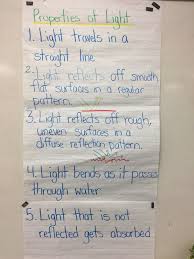 Properties of Light
1. Light travels in a
straight line
2. Light reflects off smooth,
flat surfaces in a regular
pattern.
3. Light reflects off rough,
uneven surfaces in a
diffuse reflection pattern.
4. Light bends as it passes
through water
5. Light that is not
reflected gets absorbed